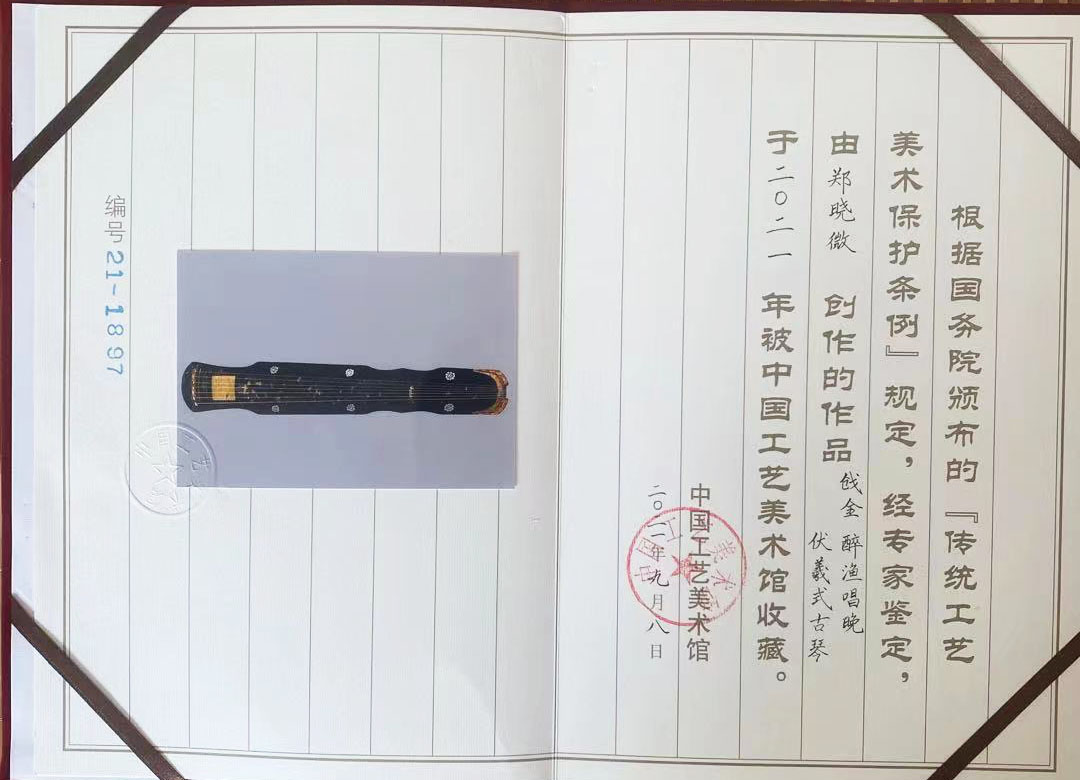 根据国务院颁布的『传统工艺
美术保护条例』规定，经专家鉴定，
由郑晓微 创作的作品 戗金 醉渔唱晚
伏羲式古琴
于二〇二一 年被中国工艺美术馆收藏。
中国工艺美术馆
二〇二一年九月八日
编号21-1897